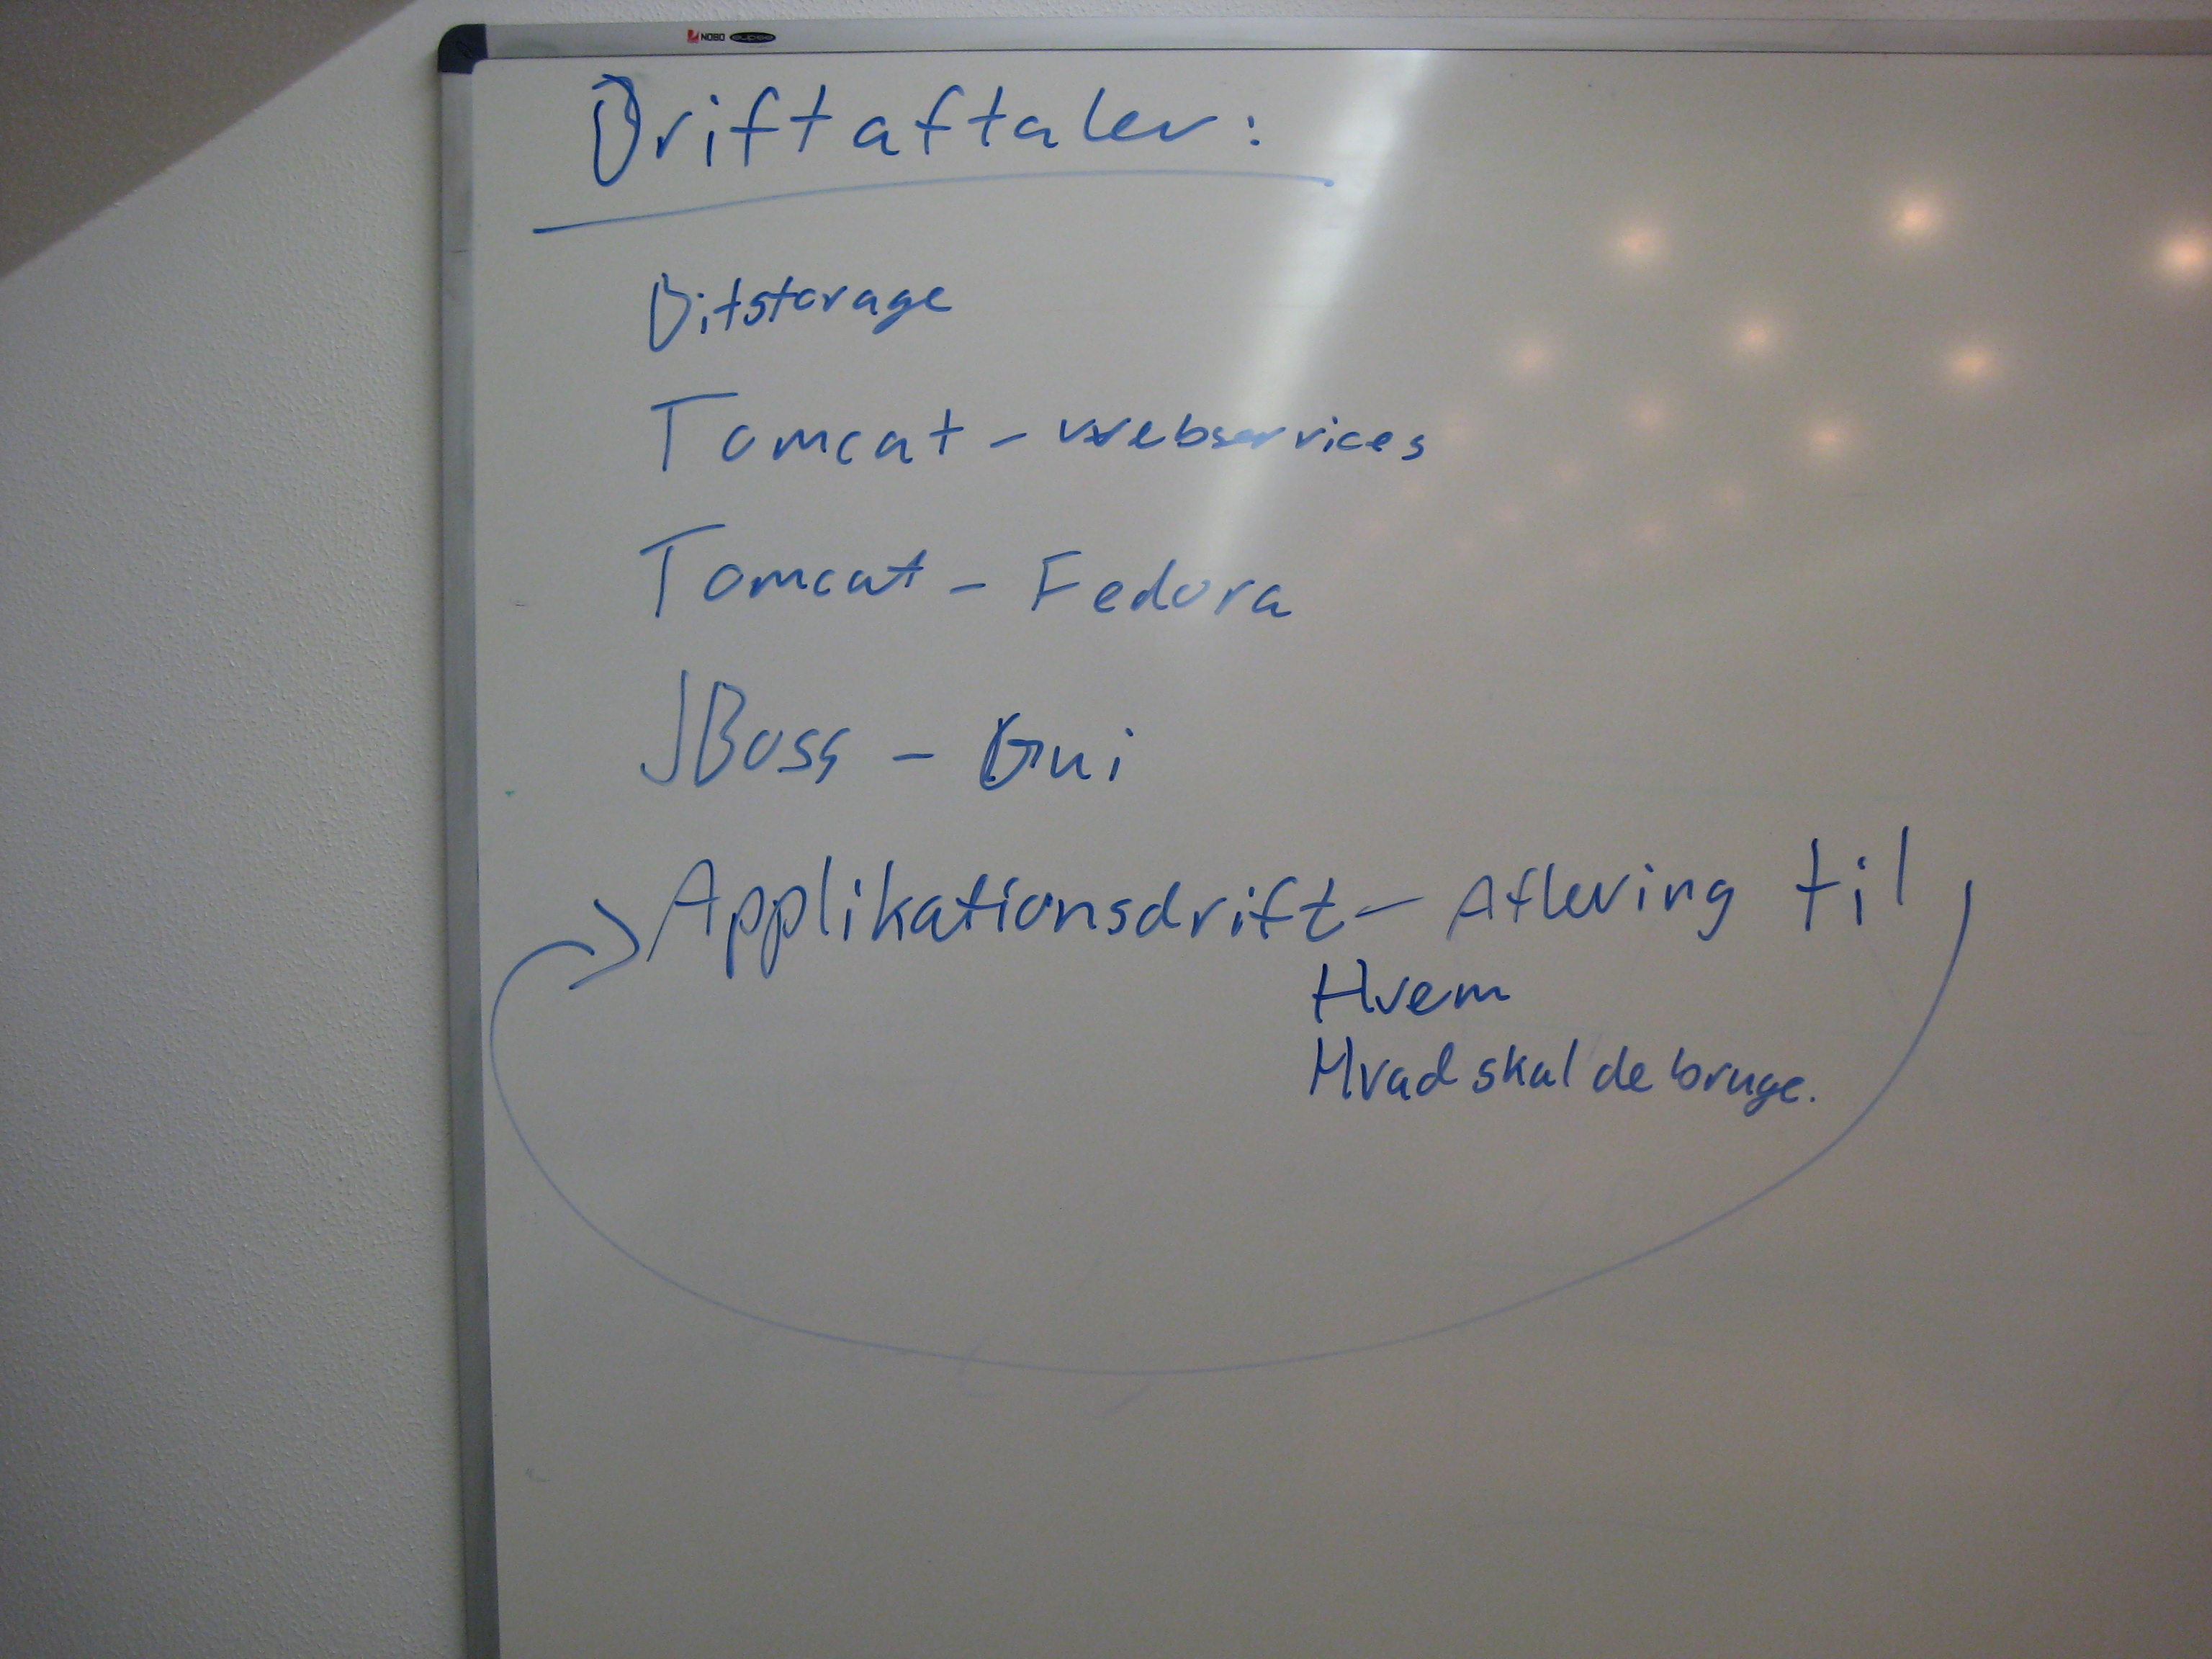 NOBO
Driftaftaler:
Bitstorage
Tomcat - webservices
Tomcat - Fedora
JBoss - Gui
Applikationsdrift - Aflevring til
Hvem
Hvad skal de bruge.